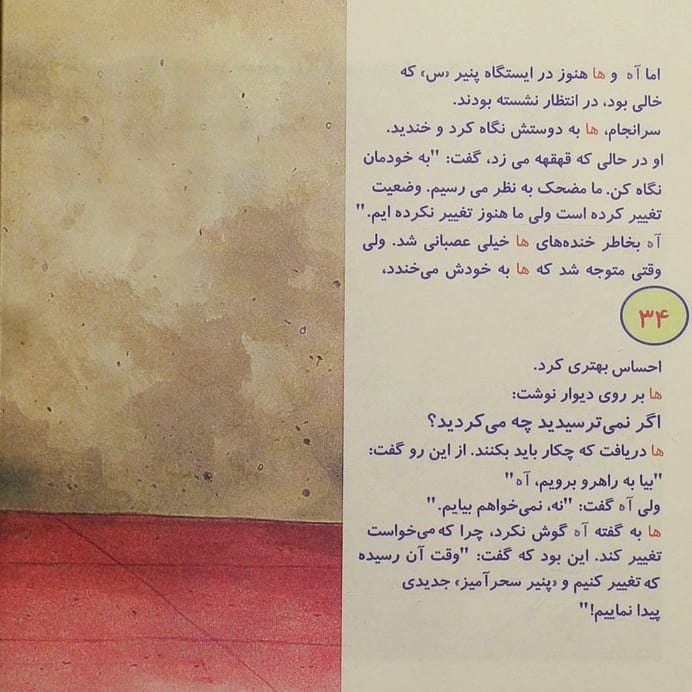 اما آه و ها هنوز در ایستگاه پنیر «س» که
خالی بود، در انتظار نشسته بودند.
سرانجام، ها به دوستش نگاه کرد و خندید.
او در حالی که قهقهه می زد، گفت: "به خودمان
نگاه کن. ما مضحک به نظر می رسیم. وضعیت
تغییر کرده است ولی ما هنوز تغییر نکرده ایم."
آه بخاطر خنده‌های ها خیلی عصبانی شد. ولی
وقتی متوجه شد که ها به خودش می‌خندد،
۳۴
احساس بهتری کرد.
ها بر روی دیوار نوشت:
اگر نمی‌ترسیدید چه می‌کردید؟
ها دریافت که چکار باید بکنند. از این رو گفت:
"بیا به راهرو برویم، آه"
ولی آه گفت: "نه، نمی‌خواهم بیایم."
ها به گفته آه گوش نکرد، چرا که می‌خواست
تغییر کند. این بود که گفت: "وقت آن رسیده
که تغییر کنیم و «پنیر سحرآمیز» جدیدی
پیدا نماییم!"